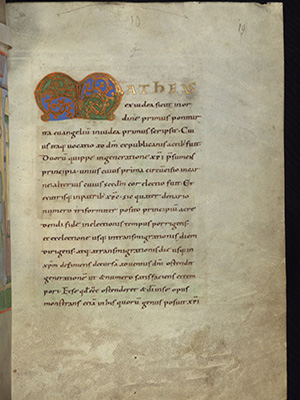 MATHEUS
ex iudea sicut inor
dine primus ponitur
ita euangeliũ iniudea primus scripsit · Cui
us uocatio ad dm̃ expublicanis actib; fuit
Duorũ quippe ingeneratione xp̃i psumens
principia · unius cuius prima circũcisio incar
ne alterius cuius scdm̃ cor electio fuit · Ex
utrisq; inpatrib; xp̃c · sic quater denario
numero triformiter posito principiũ acre
dendi fide inelectionis tempus porrigens
et exelectione usq; intransmigrationis diem
dirigens atq; atransmigrationis die usq; in
xp̃m definiens decursã aduentus dnĩ ostendit
generationẽ ut & numero satisfaciens & tem
pori · Et se
ostenderet & dĩ inse opus
monstrans etiã in his quorũ genus posuit xp̃i
19